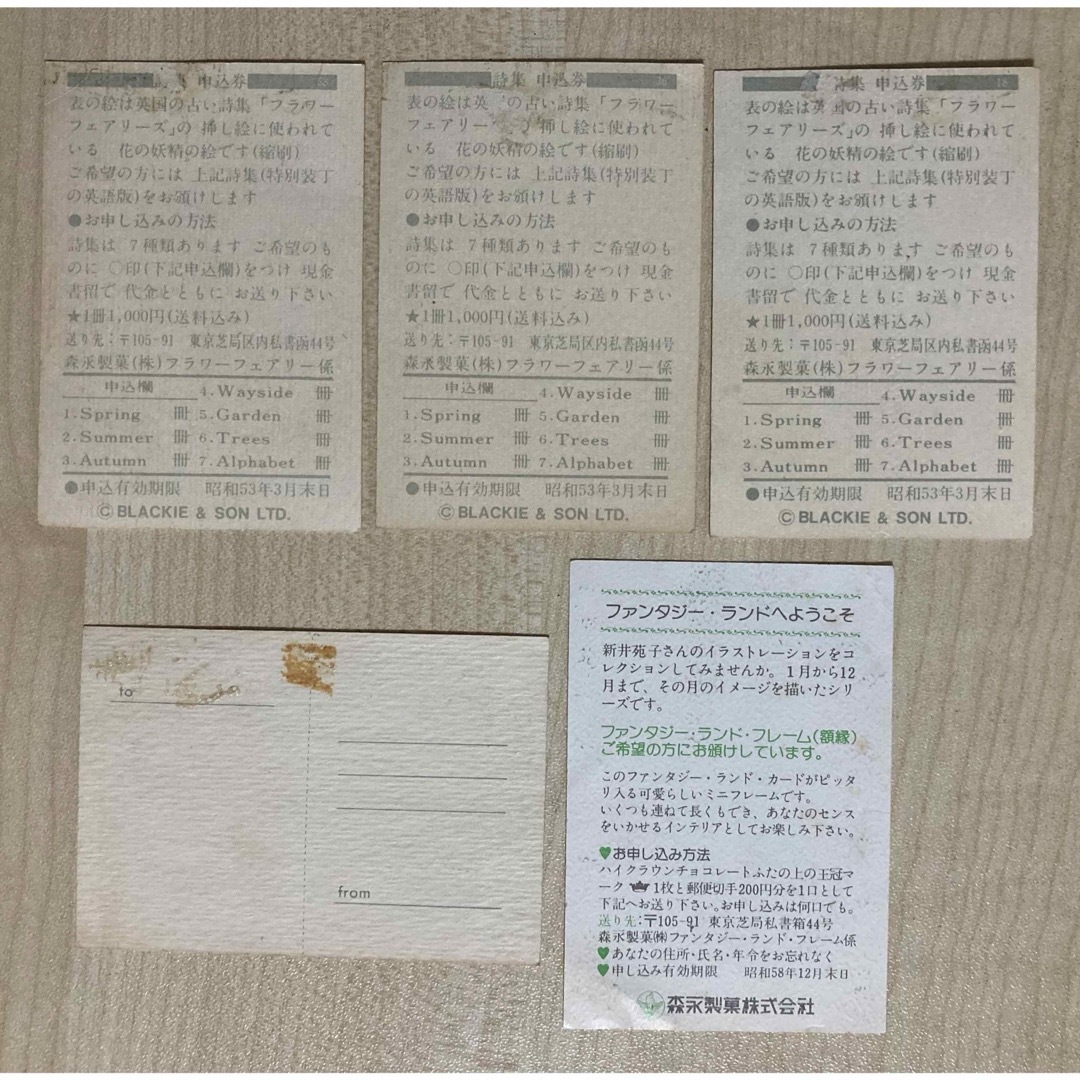 詩集 申込券
表の絵は英国の古い詩集「フラワー
フェアリーズ」の 挿し絵に使われて
いる 花の妖精の絵です(縮刷)
ご希望の方には 上記詩集(特別装丁
の英語版)をお頒けします
●お申し込みの方法
詩集は 7種類あります ご希望のも
のに ○印(下記申込欄)をつけ 現金
書留で 代金とともに お送り下さい
★1冊1,000円(送料込み)
送り先:〒105-91 東京芝局区内私書函44号
森永製菓(株)フラワーフェアリー係
申込欄 4.Wayside 冊
1.Spring 冊 5.Garden 冊
2.Summer 冊 6.Trees 冊
3.Autumn 冊 7.Alphabet 冊
●申込有効期限 昭和53年3月末日
©BLACKIE & SON LTD.
詩集 申込券
表の絵は英 の古い詩集「フラワー
フェアリー 挿し絵に使われて
いる 花の妖精の絵です(縮刷)
ご希望の方には 上記詩集(特別装丁
の英語版)をお頒けします
●お申し込みの方法
詩集は 7種類あります ご希望のも
のに ○印(下記申込欄)をつけ 現金
書留で 代金とともに お送り下さい
★1冊1,000円(送料込み)
送り先:〒105-91 東京芝局区内私書函44号
森永製菓(株)フラワーフェアリー係
申込欄 4.Wayside 冊
1.Spring 冊 5.Garden 冊
2.Summer 冊 6.Trees 冊
3.Autumn 冊 7.Alphabet 冊
●申込有効期限 昭和53年3月末日
©BLACKIE & SON LTD.
詩集 申込券 18
表の絵は英国の古い詩集「フラワー
フェアリーズ」の 挿し絵に使われて
いる 花の妖精の絵です(縮刷)
ご希望の方には 上記詩集(特別装丁
の英語版)をお頒けします
●お申し込みの方法
詩集は 7種類あります ご希望のも
のに ○印(下記申込欄)をつけ 現金
書留で 代金とともに お送り下さい
★1冊1,000円(送料込み)
送り先:〒105-91 東京芝局区内私書函44号
森永製菓(株)フラワーフェアリー係
申込欄 4.Wayside 冊
1.Spring 冊 5.Garden 冊
2.Summer 冊 6.Trees 冊
3.Autumn 冊 7.Alphabet 冊
●申込有効期限 昭和53年3月末日
©BLACKIE & SON LTD.
to
from
ファンタジー・ランドへようこそ
新井苑子さんのイラストレーションをコ
レクションしてみませんか。1月から12
月まで、その月のイメージを描いたシリ
ーズです。
ファンタジー・ランド・フレーム(額縁)
ご希望の方にお頒けしています。
このファンタジー・ランド・カードがピッタ
リ入る可愛らしいミニフレームです。
いくつも連ねて長くもでき、あなたのセンス
をいかせるインテリアとしてお楽しみ下さい。
♥お申し込み方法
ハイクラウンチョコレートふたの上の王冠マ
ーク 1枚と郵便切手200円分を1口として
下記へお送り下さい。お申し込みは何口でも。
送り先:〒105-91 東京芝局私書箱44号
森永製菓㈱ファンタジー・ランド・フレーム係
♥あなたの住所・氏名・年令をお忘れなく
♥申し込み有効期限 昭和58年12月末日
森永製菓株式会社